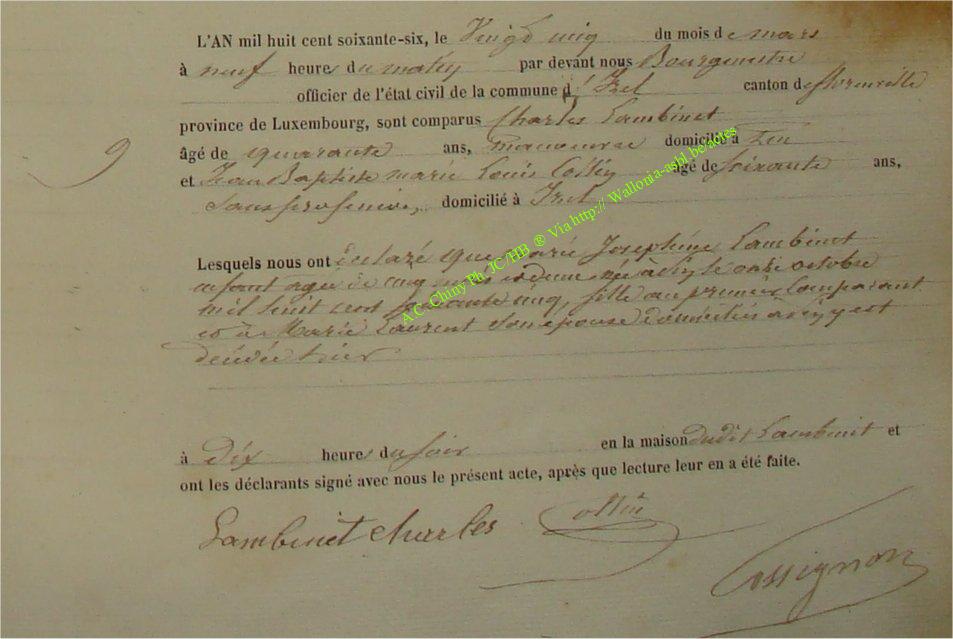 L'AN mil huit cent soixante-six, le Vingt cinq du mois de mars
à neuf heures du matin par devant nous Bourgmestre
officier de l'état civil de la commune d' Izel canton de florenville
province de Luxembourg, sont comparus Charles Lambinet
9
âgé de quarante ans, manoeuvre domicilié à
et Jean Baptiste marie Louis Collin âgé de soixante ans,
Sans profession, domicilié à Izel
Lesquels nous ont déclaré que Marie Josephine Lambinet
enfant agée de cinq mois le onze octobre
mil huit cent soixante cinq, fille au premier Comparant
et à Marie Laurent Son epouse domiciliés est
décédée hier
à Dix heures du soir en la maison dudit Lambinet et
ont les déclarants signé avec nous le présent acte, après que lecture leur en a été faite.
Lambinet Charles Collin
Cossignon
A.C. Chiny Ph. JC/HB ® Via http:// Wallonia-asbl.be/actes